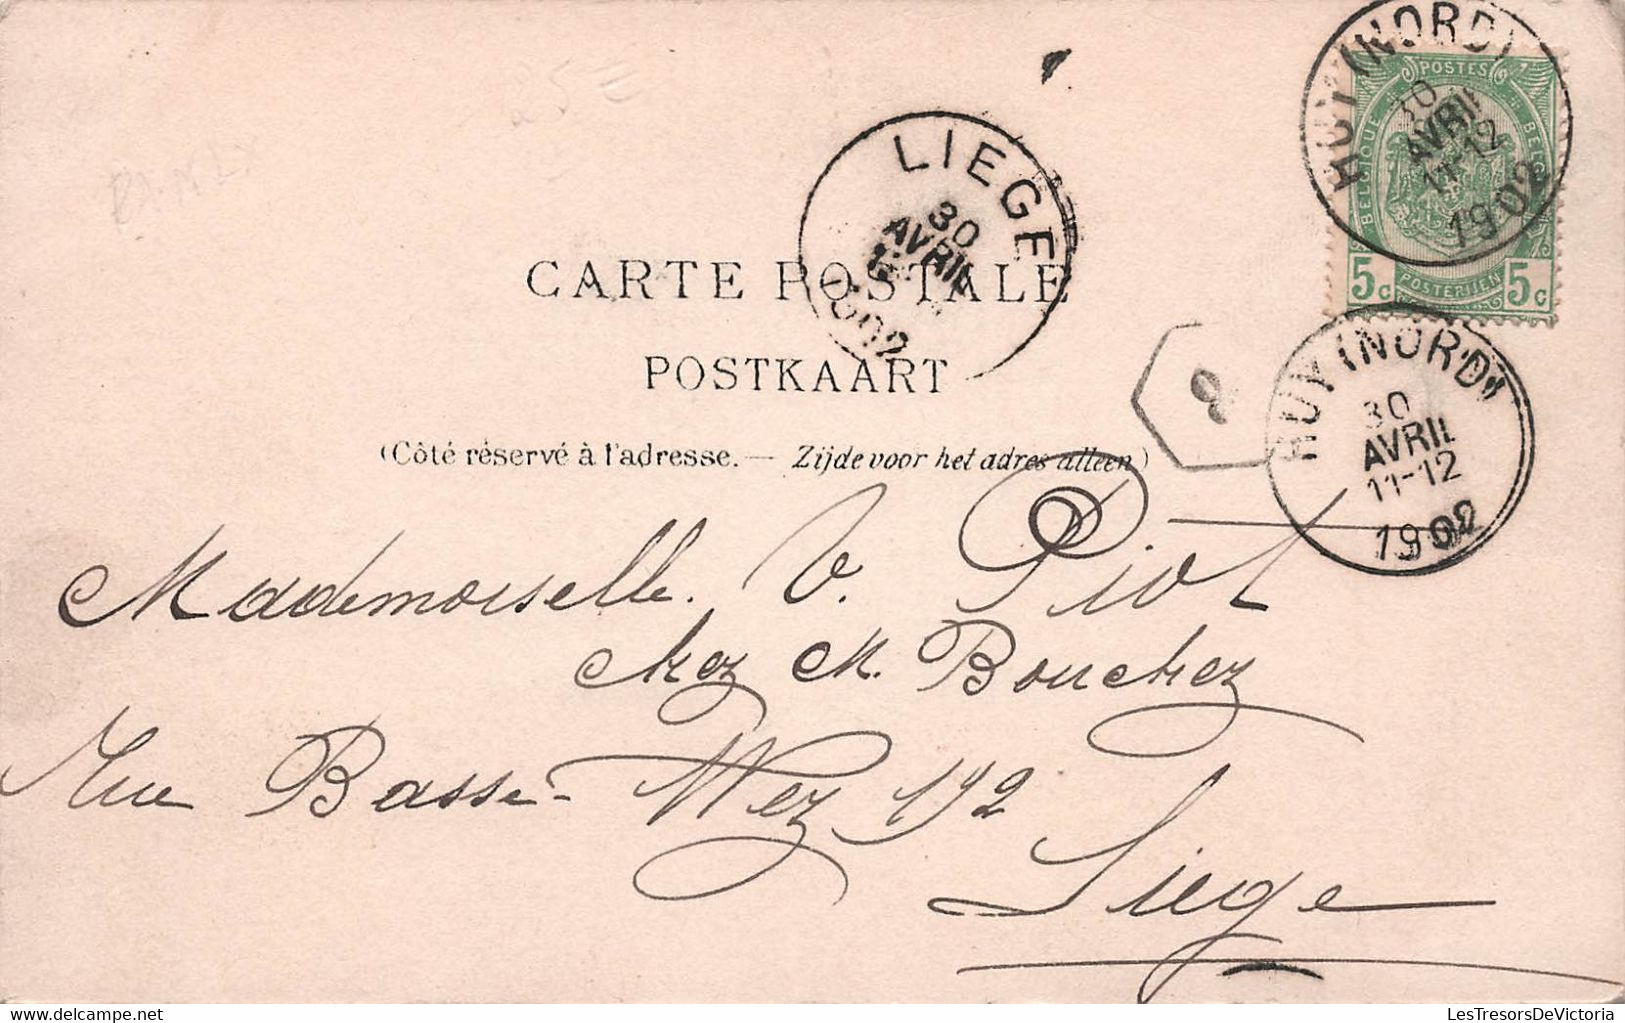 HUY (NORD)
30
AVRIL
11-12
1902
POSTES
BELGIQUE
BELGIE
POSTERIJEN
5c 5c
LIEGE
30
AVRIL
CARTE POSTALE
POSTKAART
(Côté réservé à l'adresse. — Zijde voor het adres alleen)
2
HUY (NORD)
30
AVRIL
11-12
1902
Mademoiselle. V. Piot
chez M. Bouchez
Rue Basse-Wez 192
Liege
LesTresorsDeVictoria